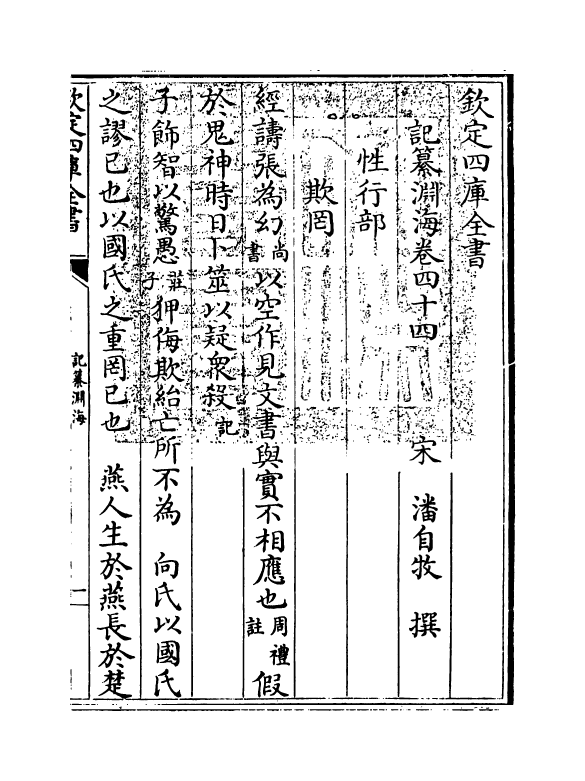 欽定四庫全書
記纂淵海卷四十四　宋　潘自牧　撰
性行部
欺罔
經譸張為幻尚書以空作見文書與實不相應也周禮註假
於鬼神時日卜筮以疑衆殺記
子飾智以驚愚莊子狎侮欺紿亡所不為　向氏以國氏
之謬已也以國氏之重罔已也　燕人生於燕長於楚
欽定四庫全書
記纂淵海